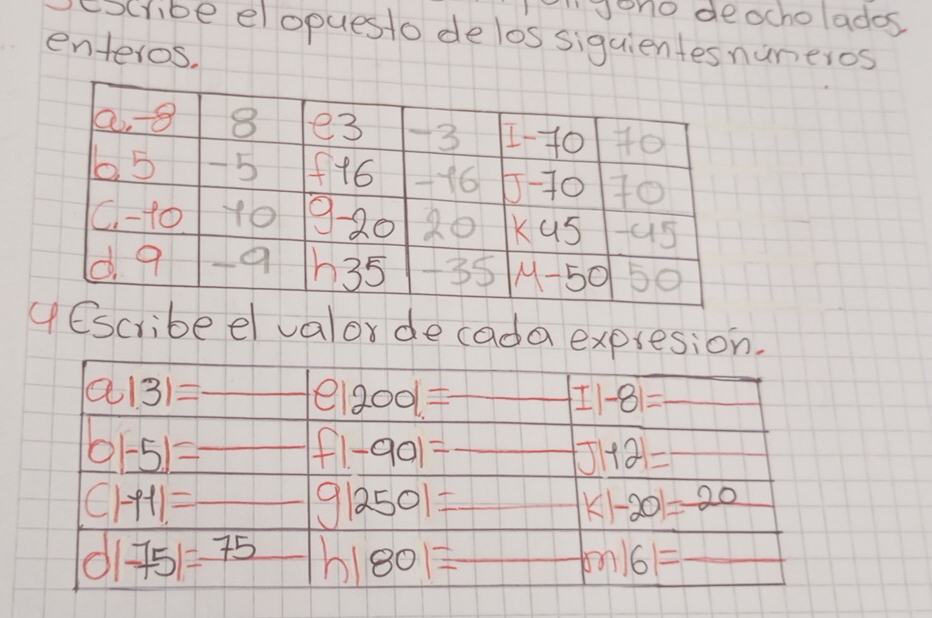 de ocho lados.
escribe el opuesto de los siguientes numeros
enteros.
a.-8 8 e3 -3 I-70 70
b.5 -5 f16 -16 J-70 70
C.-10 10 g-20 20 K45 -45
d.9 -9 h35 -35 M-50 50
4 Escribe el valor de cada expresión.
a|3|= e|200|= I|-8|=
b|-5|= f|-90|= J|12|=
C|-11|= g|250|= K|-20|=20
d|-75|=75 h|80|= m|6|=